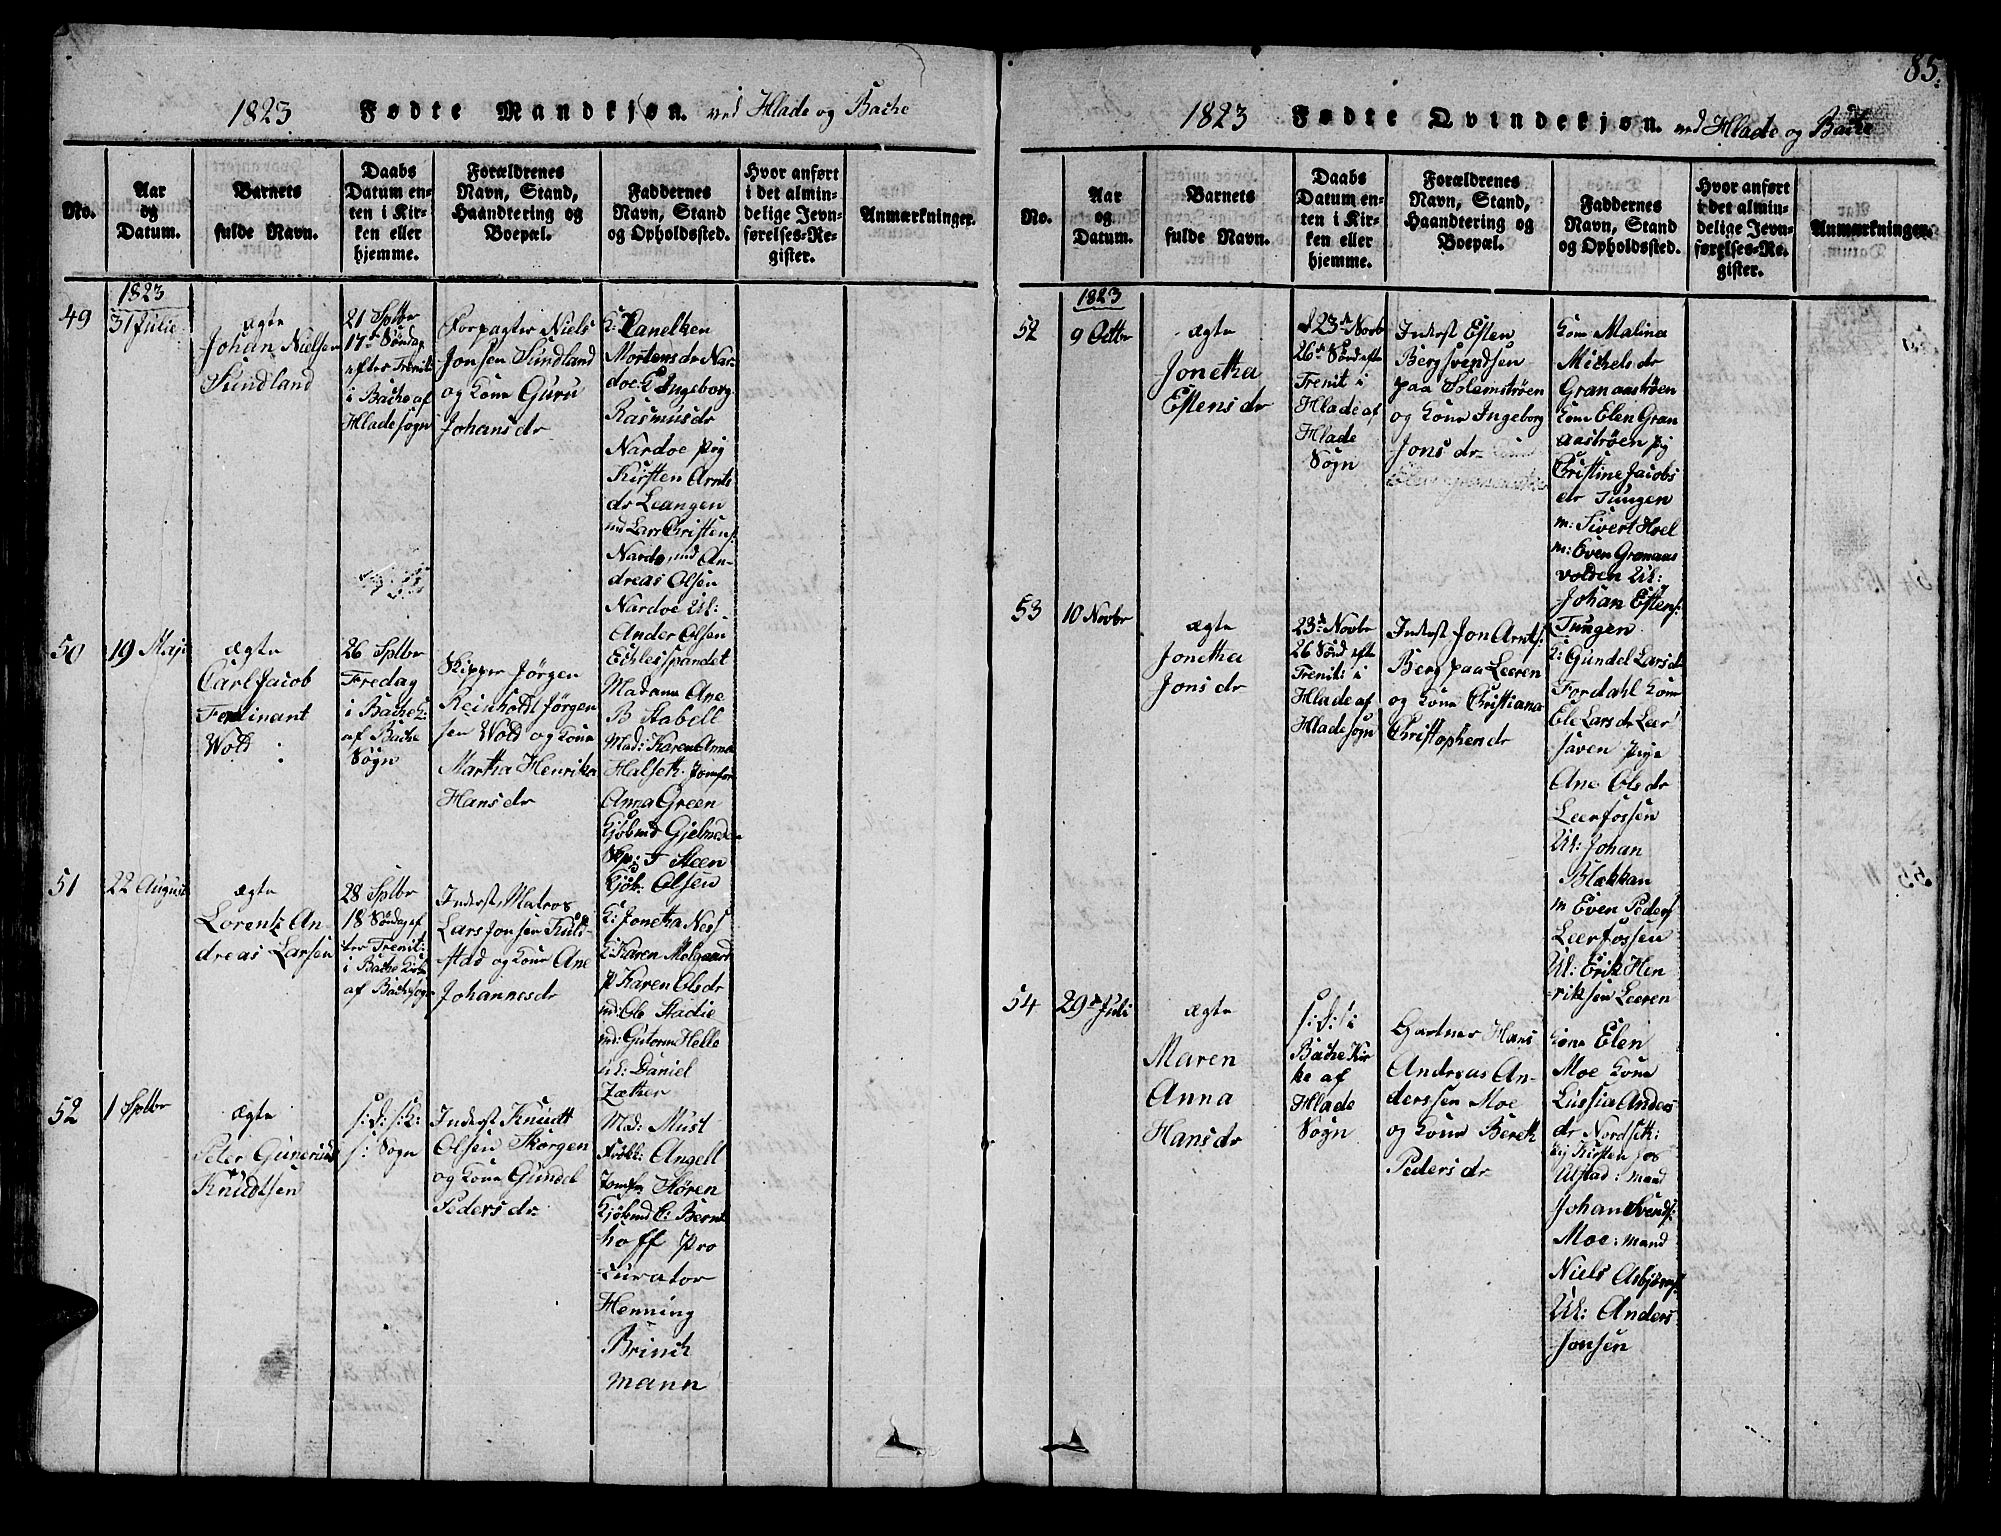 85.
1823 Fødte Mandkjøn. ved Hlade og Bache
No.
Aar
og
Datum.
Barnets
fulde Navn.
Daabs
Datum en-
ten i Kir-
ken eller
hjemme.
Forældrenes
Navn, Stand,
Haandtering og
Boepæl.
Faddernes
Navn, Stand
og Opholdssted.
Hvor anført
i det almin-
delige Jevn-
førelses-Re-
gister.
Anmærkninger.
1823
49
31 Julie
ægte
Johan Nielsen
Sundland
21 Sptbr
17de Søndag
efter Trenit:
i Bache af
Hlade sogn
Forpagter Niels
Jonsen Sundland
og kone Guru
Johansdr
K:
Mortensdr Nar-
doe K: Ingeborg
Rasmusdr
Nardoe pig
Kirsten Arnts
dr Leangen
md Lars Christens:
Nardo, md An-
dreas Olsen
Nardoe Uk:
Ander Olsen
50
19 Maji
ægte
Carl Jacob
Ferdinant
Wold
26 Sptbr
Fredag
i Bache K:
af Bache
Sogn
Skipper Jørgen
Reinholdt Jørgen
sen Wold og kone
Martha Henrika
Hansdr
Madame Ane
B Stabell
Mad: Karen Anne
Halseth Jomfru
Anna Green
Kjøbmd Gjelmeden
Skp: T Steen
Kjøb: Olsen
51
22 August
ægte
Lorentz An-
dreas Larsen
28 Sptbr
18 Søndag ef
ter Trenit:
i Bache Kirke
af Bache sogn
Inderst, Matros
Lars Jonsen Kuld-
stad og kone Ane
Johannesdr
K: Jonetha Ness
K: Karen Molgaard
P Karen Olsdr
md: Ole Stadie
md: Gutorm Helle
Uk: Daniel
Zether
52
1 Sptbr
ægte
Peter Gunerius
Knudtsen
s: D: s: K:
s: Sogn
Inderst Knudt
Olsen Skorgen
og kone Gundel
Pedersdr
Mad: Must
Frøkl: Angell
Jomfr Støren
Kjøbmd C: Bernt
hoff Pro
curator
Henning
Brinch
mann
1823 Fødte Qvindekjøn. ved Hlade og Bache
No.
Aar
og
Datum.
Barnets
fulde Navn.
Daabs
Datum en-
ten i Kir-
ken eller
hjemme.
Forældrenes
Navn, Stand,
Haandtering og
Boepæl.
Faddernes
Navn, Stand
og Opholdssted.
Hvor anført
i det almin-
delige Jevn-
førelses-Re-
gister.
Anmærkninger.
1823
52
9 Octbr
ægte
Jonetha
Estensdr
d 23de Novb
26de Sønd efte
Trenit i
Hlade af
Hlade
Sogn
Inderst Esten
Berg Svendsen
paa Solemstrøen
og kone Ingeborg
Jonsdr
kone Malina
Michelsdr
Granaastrøen
kone Elen Gran
aastrøen pig
Christine Jacobs
dr Tungen
m: Sivert Hoel
m: Even Granaas
volden Uk:
Johan Estens:
Tungen
53
10 Novbr
ægte
Jonetha
Jonsdr
23de Novbr
26 Sønd efte
Trenit: i
Hlade af
Hlade sogn
Inderst Jon Arnts:
Berg paa Leeren
og kone Christiana
Christophersdr
K: Gundel Larsdr
Fordahl kone
Ele Larsdr Leer
Ane Olsdr
Leerfossen
Uk: Johan
Blekkan
m Even Peders
Leerfossen
Uk: Erik Hen
riksen Leeren
54
29de Juli
ægte
Maren
Anna
Hansdr
s: D: s: i
Bache Kir
ke af
Hlade
Sogn
Gartner Hans
Andreas An-
derssen Moe
og kone Bereth
Pedersdr
kone Elen
Moe kone
Lussia Anders
dr Nordseth:
pig Kirsten
Ulstad: mand
Johan Svends:
Moe: mand
Niels Asbjørns:
Uk: Anders
Jonsen